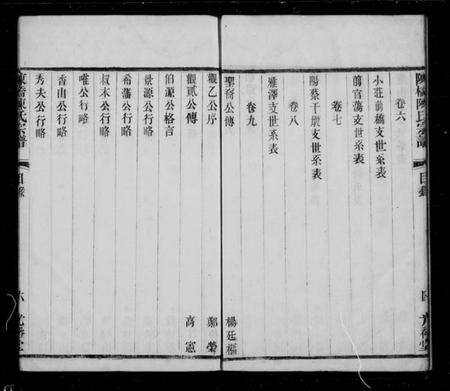 陳氏宗譜
目錄
卷六
小莊前橋支世系表
前官蕩支世系表
卷七
陽蔡干墩支世系表
卷八
雅澤支世系表
卷九
聖脅公傳 楊廷樞
觀乙公序 鄭榮
觀貳公傳 高憲
伯源公格言
景源公行略
希藩公行略
叔木公行略
唯公行略
香山公行略
秀夫公行略
陳氏宗譜
目錄
六